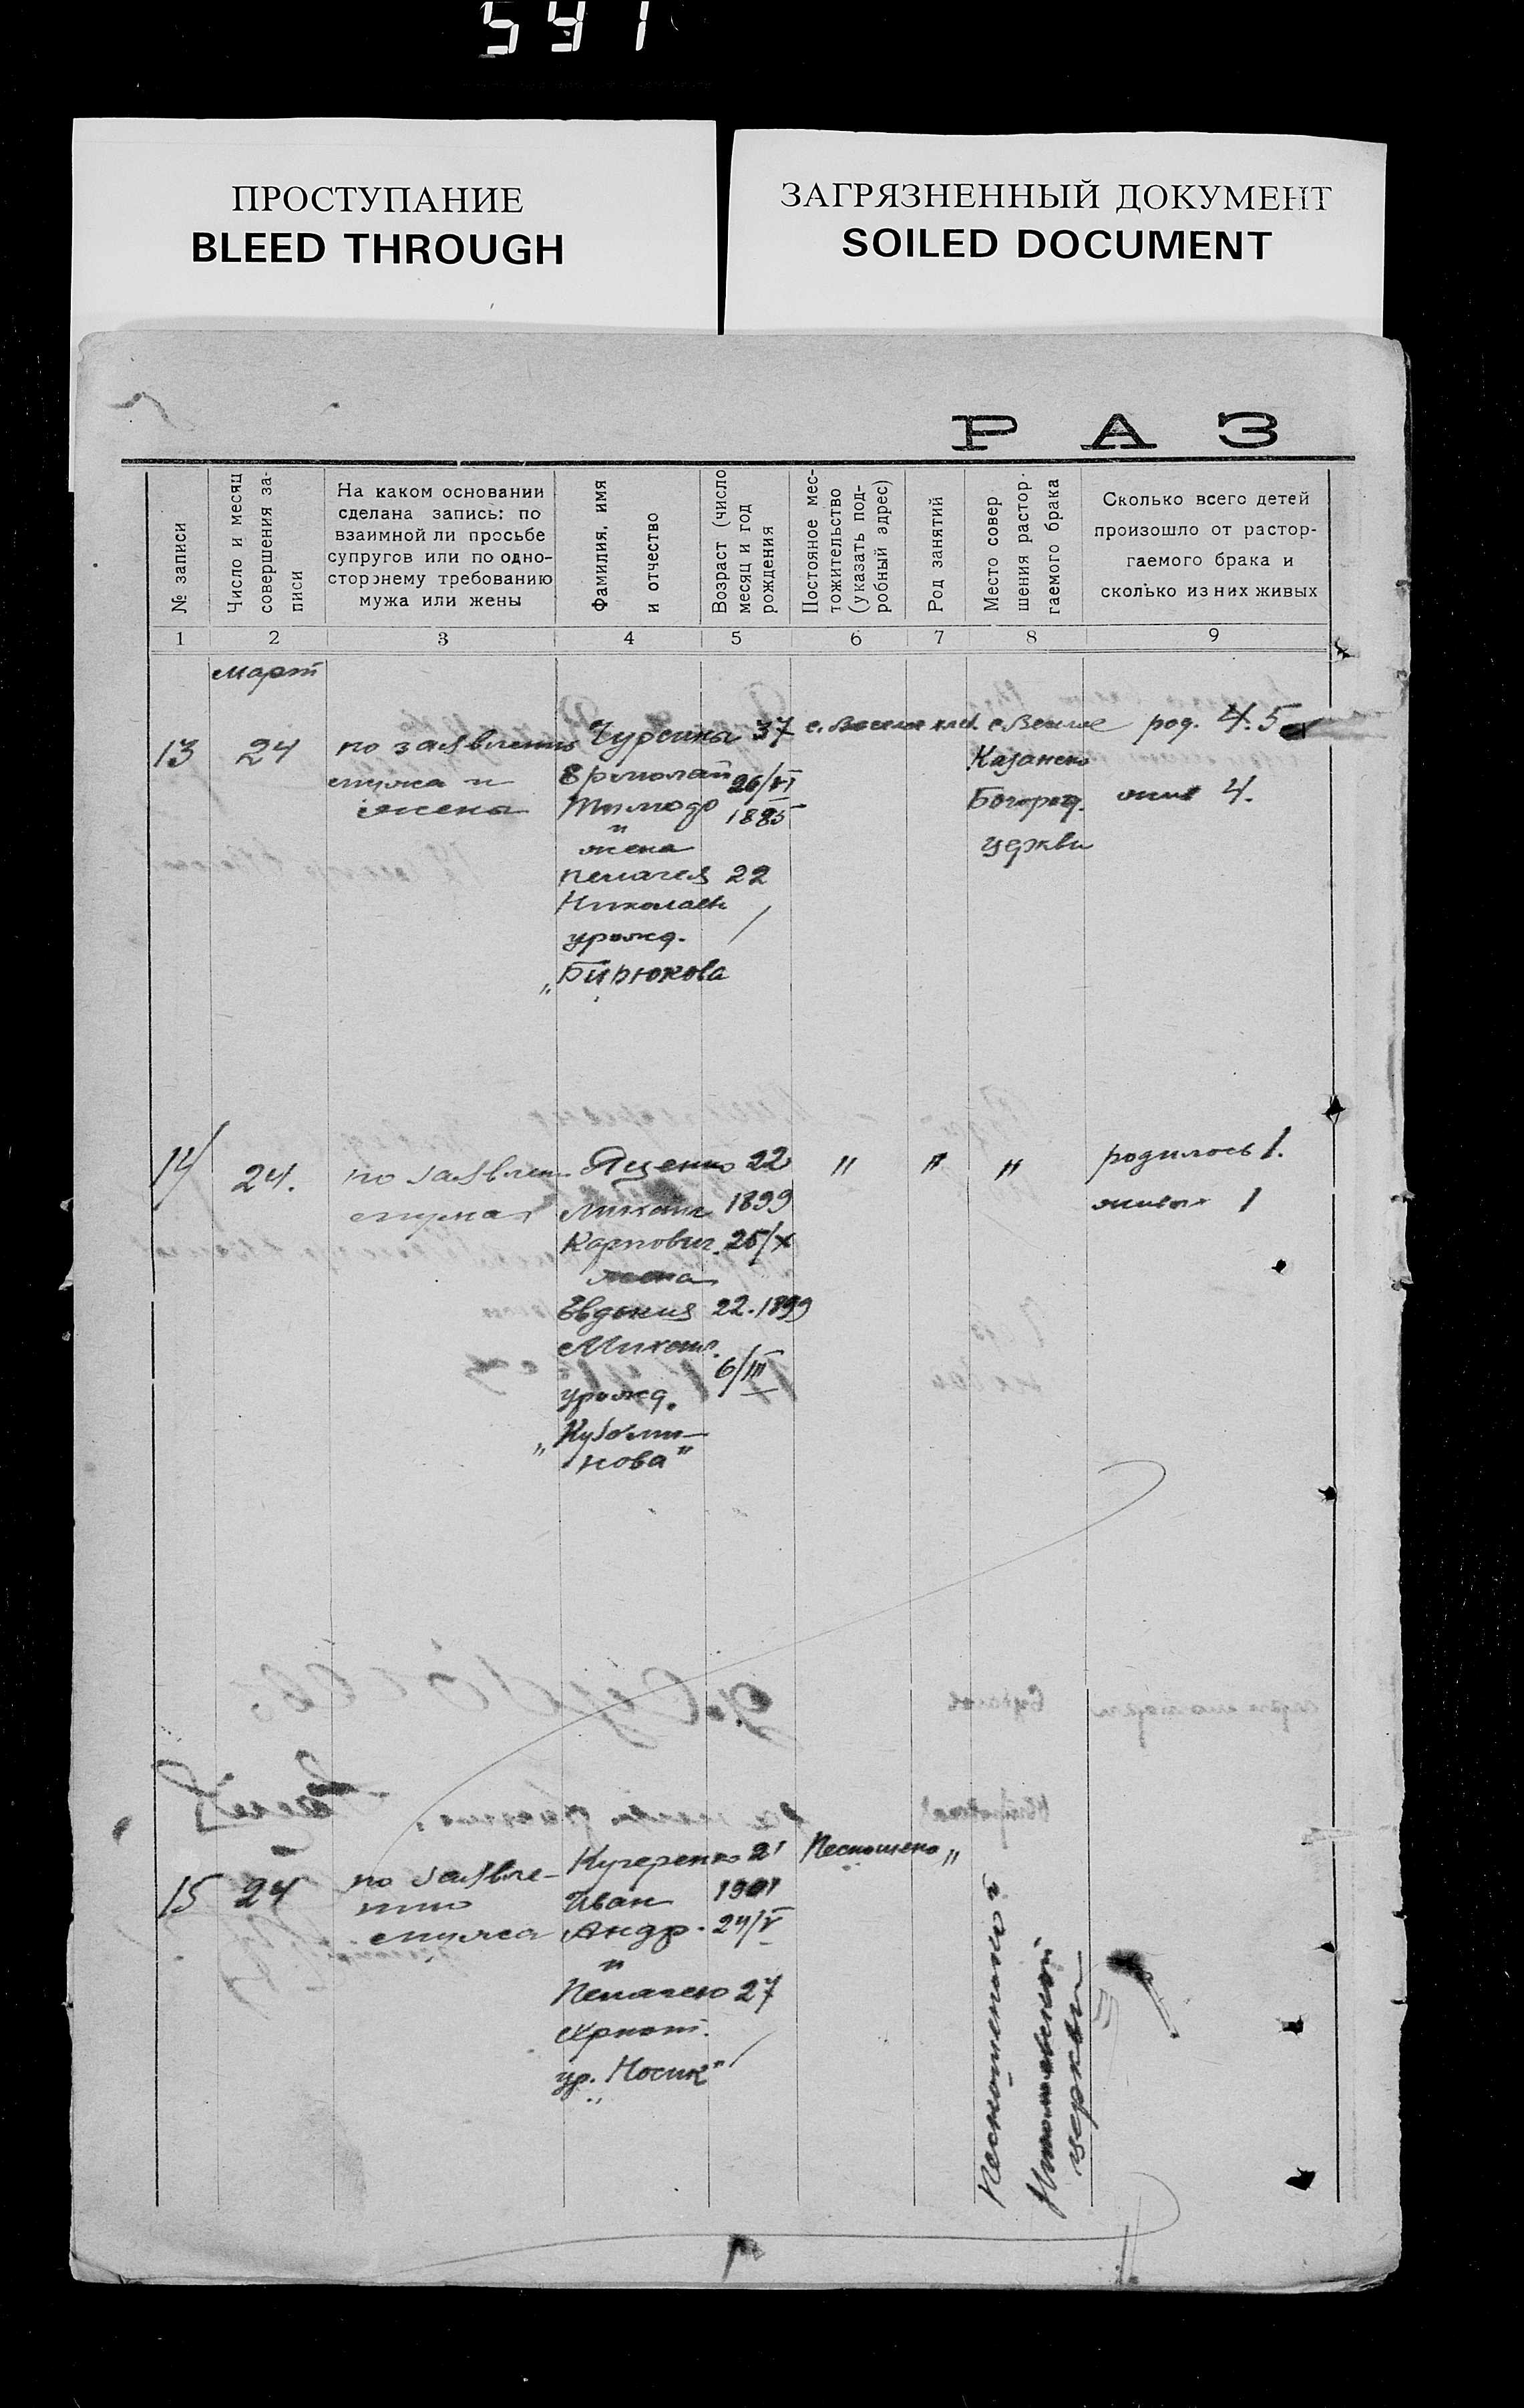 591
ПРОСТУПАНИЕ
BLEED THROUGH
ЗАГРЯЗНЕННЫЙ ДОКУМЕНТ
SOILED DOCUMENT
РАЗ
№ записи
Число и месяц
совершения за-
писи
На каком основании
сделана запись: по
взаимной ли просьбе
супругов или по одно-
стороннему требованию
мужа или жены
Фамилия, имя
и отчество
Возраст (число
месяц и год
рождения
Постояное мес-
тожительство
(указать под-
робный адрес)
Род занятий
Место совер
шения растор.
гаемого брака
Сколько всего детей
произошло от растор-
гаемого брака и
сколько из них живых
1 2 3 4 5 6 7 8 9
март
13
24
по заявлению
мужа и
жены
Чурсины 37
Ермолай 26/VI
Тимофо 1885
и
жена
Пелагея 22
Николаев
урожд.
„Бирюкова
Казанско
Богород.
церкви
род. 4.
жив 4.
14
24.
по заявлен
мужа
Яценко 22
Михаил 1899
Карпович 25/X
жена
Евдокия 22. 1899
Михаил.
6/III
урожд.
нова"
" " "
родилось 1.
живых 1
15
24
по заявле-
нию
мужа
Кучеренко 21
Иван 1901
Андр. 24/V
и
Пелагею 27
ур. Носик"
Пескошено "
Николаевской
церкви